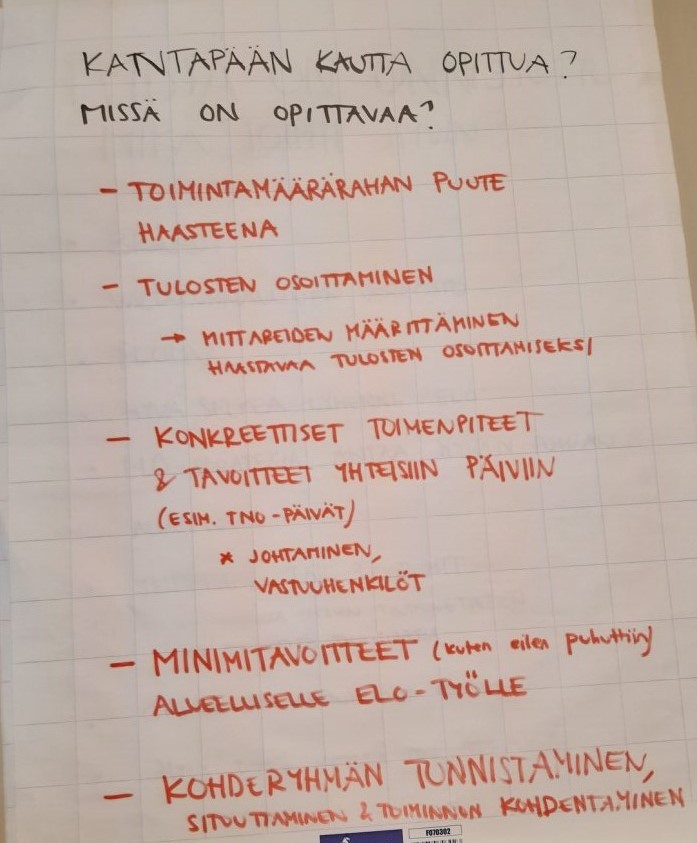 KANTAPÄÄN KAUTTA OPITTUA?
MISSÄ ON OPITTAVAA?
- TOIMINTAMÄÄRÄRAHAN PUUTE
HAASTEENA
- TULOSTEN OSOITTAMINEN
→ MITTAREIDEN MÄÄRITTÄMINEN
HAASTAVAA TULOSTEN OSOITTAMISEKSI
- KONKREETTISET TOIMENPITEET
& TAVOITTEET YHTEISIIN PÄIVIIN
(ESIM. TNO-PÄIVÄT)
* JOHTAMINEN,
VASTUUHENKILÖT
- MINIMITAVOITTEET (kuten eilen puhuttiin)
ALUEELLISELLE ELO-TYÖLLE
- KOHDERYHMÄN TUNNISTAMINEN,
SITOUTTAMINEN & TOIMINNON KOHDENTAMINEN
F070302